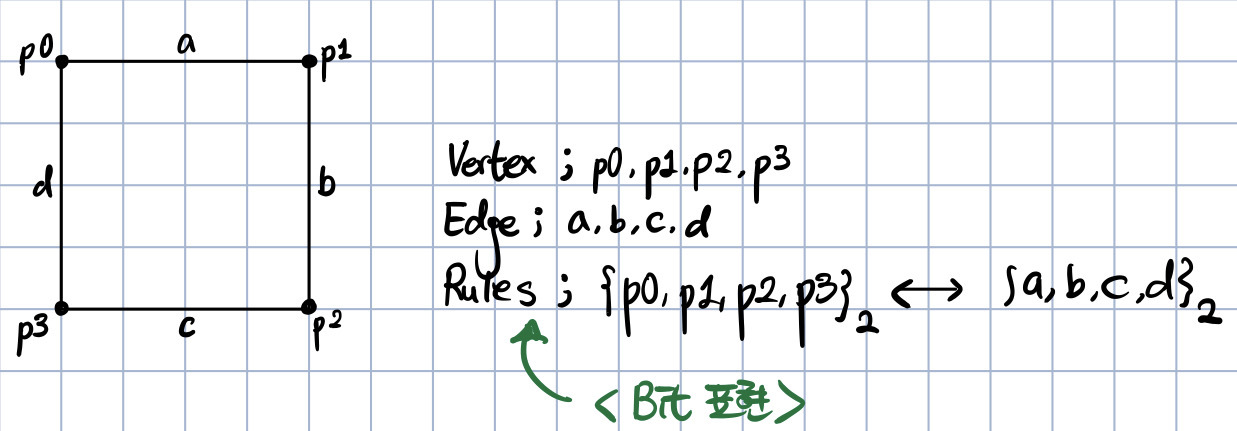 p0 a p1
d b
p3 c p2
Vertex ; p0, p1, p2, p3
Edge ; a, b, c, d
Rules ; {p0, p1, p2, p3}₂ ↔ {a, b, c, d}₂
<Bit 표현>